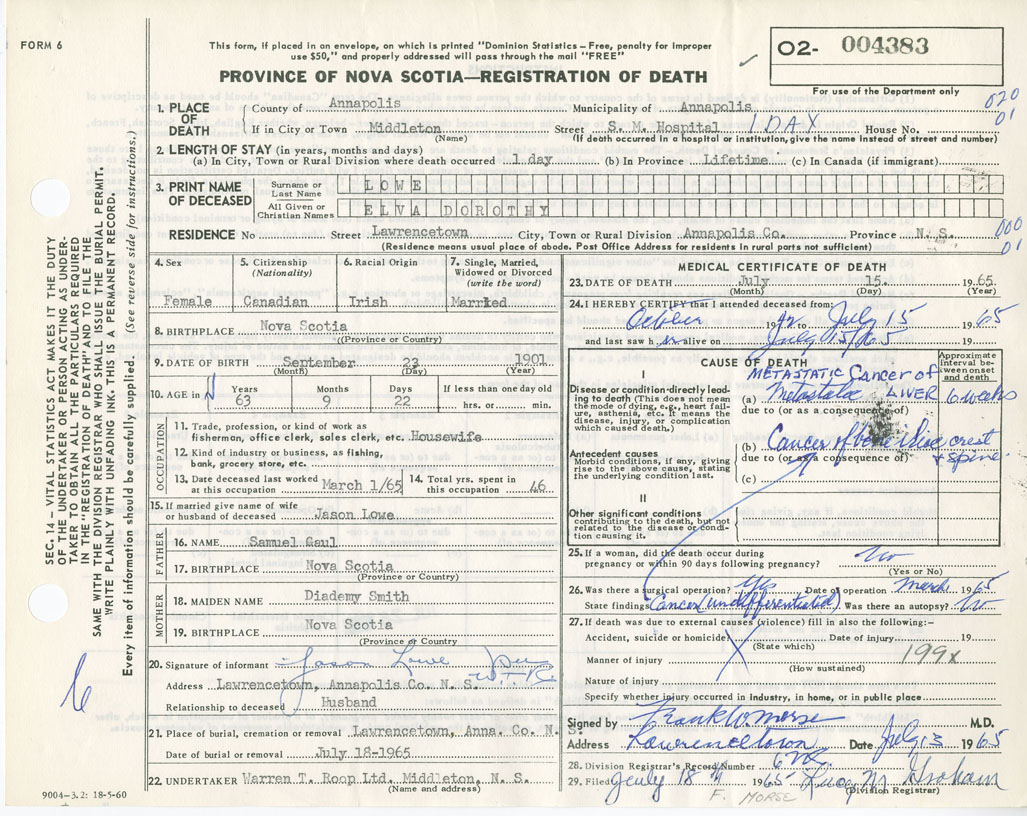 FORM 6
This form, if placed in an envelope, on which is printed "Dominion Statistics – Free, penalty for improper
use $50," and properly addressed will pass through the mail "FREE"
02- 004383
PROVINCE OF NOVA SCOTIA—REGISTRATION OF DEATH
For use of the Department only
1. PLACE OF DEATH
County of Annapolis Municipality of Annapolis 020
If in City or Town Middleton Street S. M. Hospital 1 DAY House No. 01
(Name) (If death occurred in a hospital or institution, give the name instead of street and number)
2. LENGTH OF STAY (in years, months and days)
(a) In City, Town or Rural Division where death occurred 1 day (b) In Province Lifetime. (c) In Canada (if immigrant)
3. PRINT NAME OF DECEASED
Surname or Last Name LOWE
All Given or Christian Names ELVA DOROTHY
RESIDENCE No Street Lawrencetown City, Town or Rural Division Annapolis Co. Province N. S. 000
(Residence means usual place of abode. Post Office Address for residents in rural parts not sufficient) 01
4. Sex
Female
5. Citizenship
(Nationality)
Canadian
6. Racial Origin
Irish
7. Single, Married,
Widowed or Divorced
(write the word)
Married
8. BIRTHPLACE Nova Scotia
((Province or Country)
9. DATE OF BIRTH September 23 1901
(Month) (Day) (Year)
10. AGE in
Years Months Days If less than one day old
63 9 22 hrs. or min.
OCCUPATION
11. Trade, profession, or kind of work as
fisherman, office clerk, sales clerk, etc. Housewife
12. Kind of industry or business, as fishing,
bank, grocery store, etc.
13. Date deceased last worked
at this occupation March 1/65
14. Total yrs. spent in
this occupation 46
15. If married give name of wife
or husband of deceased Jason Lowe
FATHER
16. NAME Samuel Gaul
17. BIRTHPLACE Nova Scotia
(Province or Country)
MOTHER
18. MAIDEN NAME Diademy Smith
19. BIRTHPLACE Nova Scotia
(Province or Country
20. Signature of informant Jason Lowe
Address Lawrencetown, Annapolis Co. N. S.
Relationship to deceased Husband
21. Place of burial, cremation or removal Lawrencetown, Anna. Co. N. S.
Date of burial or removal July 18-1965
22. UNDERTAKER Warren T. Roop Ltd. Middleton, N. S.
(Name and address)
MEDICAL CERTIFICATE OF DEATH
23. DATE OF DEATH July 15. 1965
(Month) (Day) (Year)
24. I HEREBY CERTIFY that I attended deceased from:
October 1942 to July 15 1965
and last saw h er alive on July 15/65 19
CAUSE OF DEATH
Approximate
interval be-
tween onset
and death
I
Disease or condition directly lead-
ing to death (This does not mean
the mode of dying, e.g., heart fail-
ure, asthenia, etc. It means the
disease, injury, or complication
which caused death.)
METASTATIC Cancer of
(a) LIVER 6 weeks
due to (or as a consequence of)
Antecedent causes
Morbid conditions, if any, giving
rise to the above cause, stating
the underlying condition last.
(b) Cancer of bone iliac crest
due to (or as a consequence of) + spine
(c)
II
Other significant conditions
contributing to the death, but not
related to the disease or condi-
tion causing it.
25. If a woman, did the death occur during
pregnancy or within 90 days following pregnancy? No
(Yes or No)
26. Was there a surgical operation? Yes Date of operation March 1965
State findings Cancer (undifferentiated) Was there an autopsy? No
27. If death was due to external causes (violence) fill in also the following:–
Accident, suicide or homicide Date of injury 19
(State which)
Manner of injury 199x
(How sustained)
Nature of injury
Specify whether injury occurred in industry, in home, or in public place
Signed by Frank W. Morse M.D.
Address Lawrencetown Date July 1965
28. Division Registrar's Record Number
29. Filed July 18 1965 Graham
(Division Registrar)
F. MORSE
SEC. 14 – VITAL STATISTICS ACT MAKES IT THE DUTY
OF THE UNDERTAKER OR PERSON ACTING AS UNDER-
TAKER TO OBTAIN ALL THE PARTICULARS REQUIRED
IN THE "REGISTRATION OF DEATH" AND TO FILE THE
SAME WITH THE DIVISION REGISTRAR WHO SHALL ISSUE THE BURIAL PERMIT.
WRITE PLAINLY WITH UNFADING INK–THIS IS A PERMANENT RECORD.
Every item of information should be carefully supplied. (See reverse side for instructions.)
9004-3.2: 18-5-60